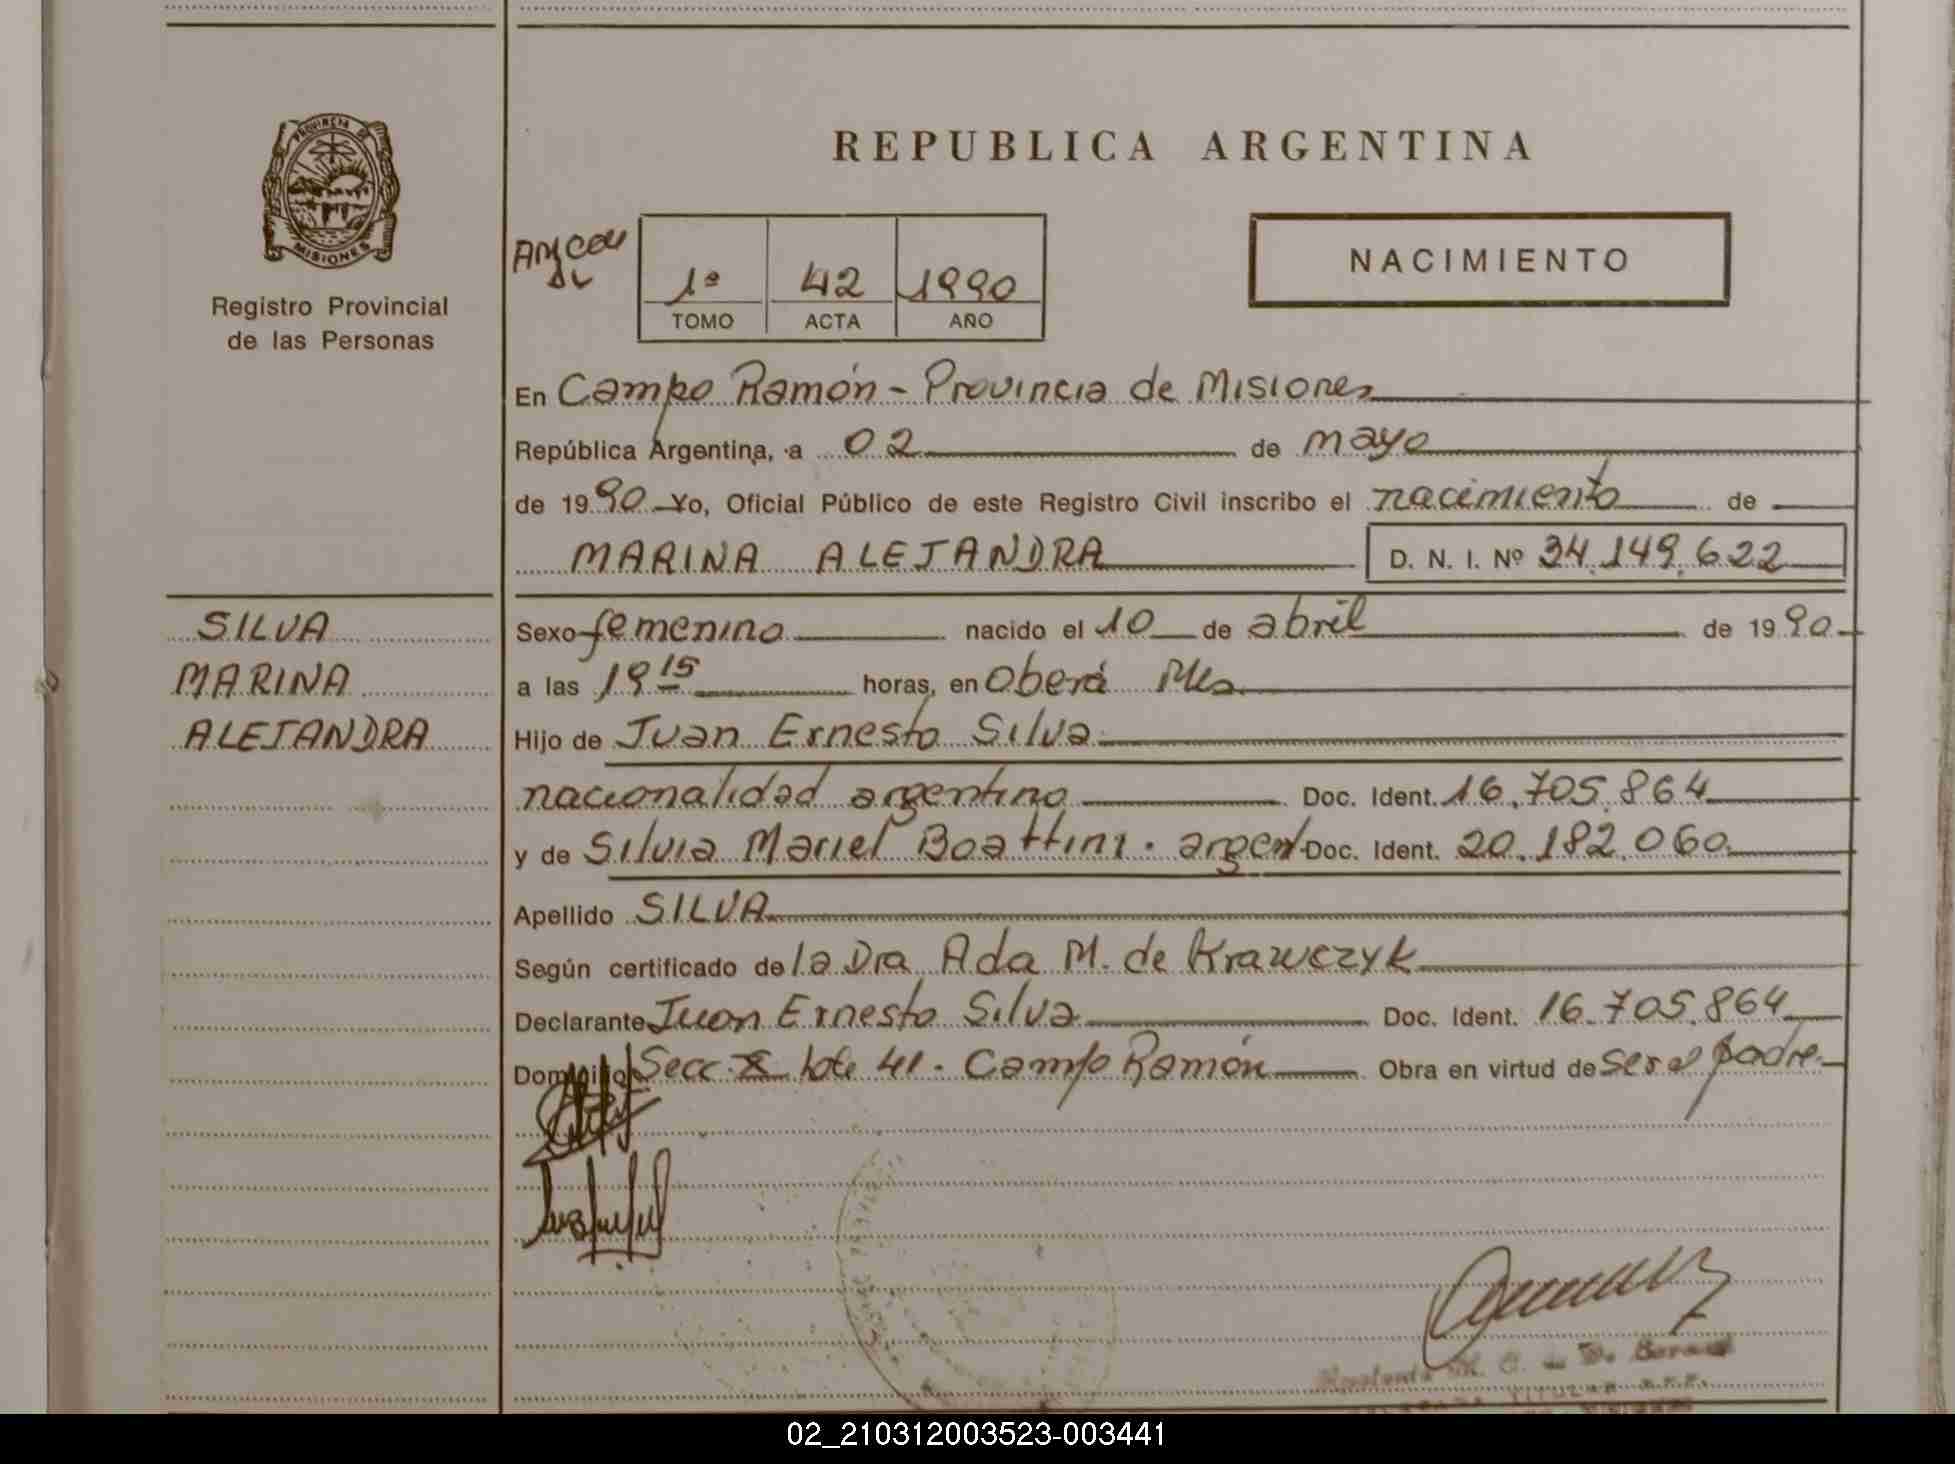 PROVINCIA DE
MISIONES
Registro Provincial
de las Personas
REPUBLICA ARGENTINA
1º 42 1990
TOMO ACTA AÑO
NACIMIENTO
En Campo Ramón - Provincia de Misiones
República Argentina, a 02 de mayo
de 1990 Yo, Oficial Público de este Registro Civil inscribo el nacimiento de
MARINA ALEJANDRA D. N. I. Nº 34.149.622
SILVA
MARINA
ALEJANDRA
Sexo femenino nacido el 10 de abril de 1990
a las 19 15 horas, en Oberá Mes
Hijo de Juan Ernesto Silva
nacionalidad argentino Doc. Ident. 16.705.864
y de Silvia Mariel Boattini. argent Doc. Ident. 20.182.060
Apellido SILVA
Según certificado de la Dra Ada M. de Krawczyk
Declarante Juan Ernesto Silva Doc. Ident. 16.705.864
Domicilio Secc. lote 41. Campo Ramón Obra en virtud de ser el padre
02_210312003523-003441